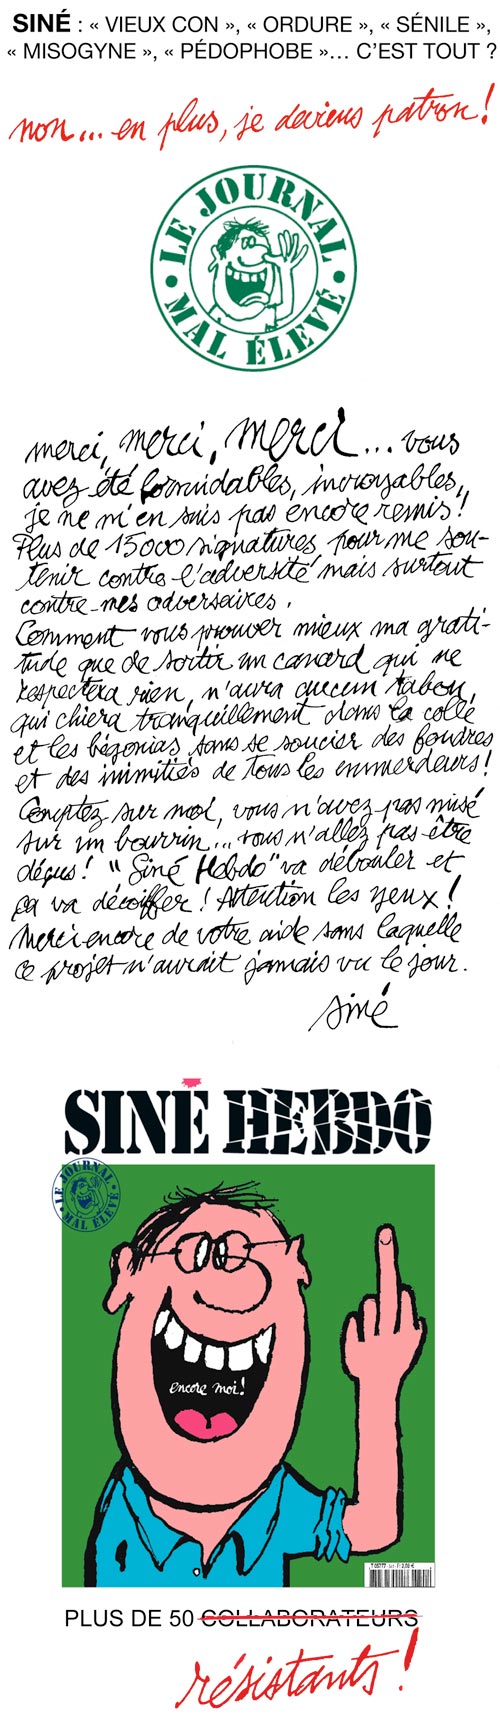 SINÉ : « VIEUX CON », « ORDURE », « SÉNILE »,
« MISOGYNE », « PÉDOPHOBE »… C’EST TOUT ?
non... en plus, je deviens patron !
LE JOURNAL
MAL ÉLEVÉ
merci, merci, merci... vous
avez été formidables, incroyables,
je ne m'en suis pas encore remis !
Plus de 15000 signatures pour me sou-
tenir contre l'adversité mais surtout
contre mes adversaires.
Comment vous prouver mieux ma grati-
tude que de sortir un canard qui ne
respectera rien, n'aura aucun tabou,
qui chiera tranquillement dans la colle
et les bégonias sans se soucier des foudres
et des inimitiés de tous les emmerdeurs !
Comptez sur moi, vous n'avez pas misé
sur un bourrin... vous n'allez pas être
déçus ! "Siné Hebdo" va débouler et
ça va décoiffer ! Attention les yeux !
Merci encore de votre aide sans laquelle
ce projet n'aurait jamais vu le jour.
Siné
SINÉ HEBDO
LE JOURNAL
MAL ÉLEVÉ
encore moi !
PLUS DE 50 COLLABORATEURS
résistants !